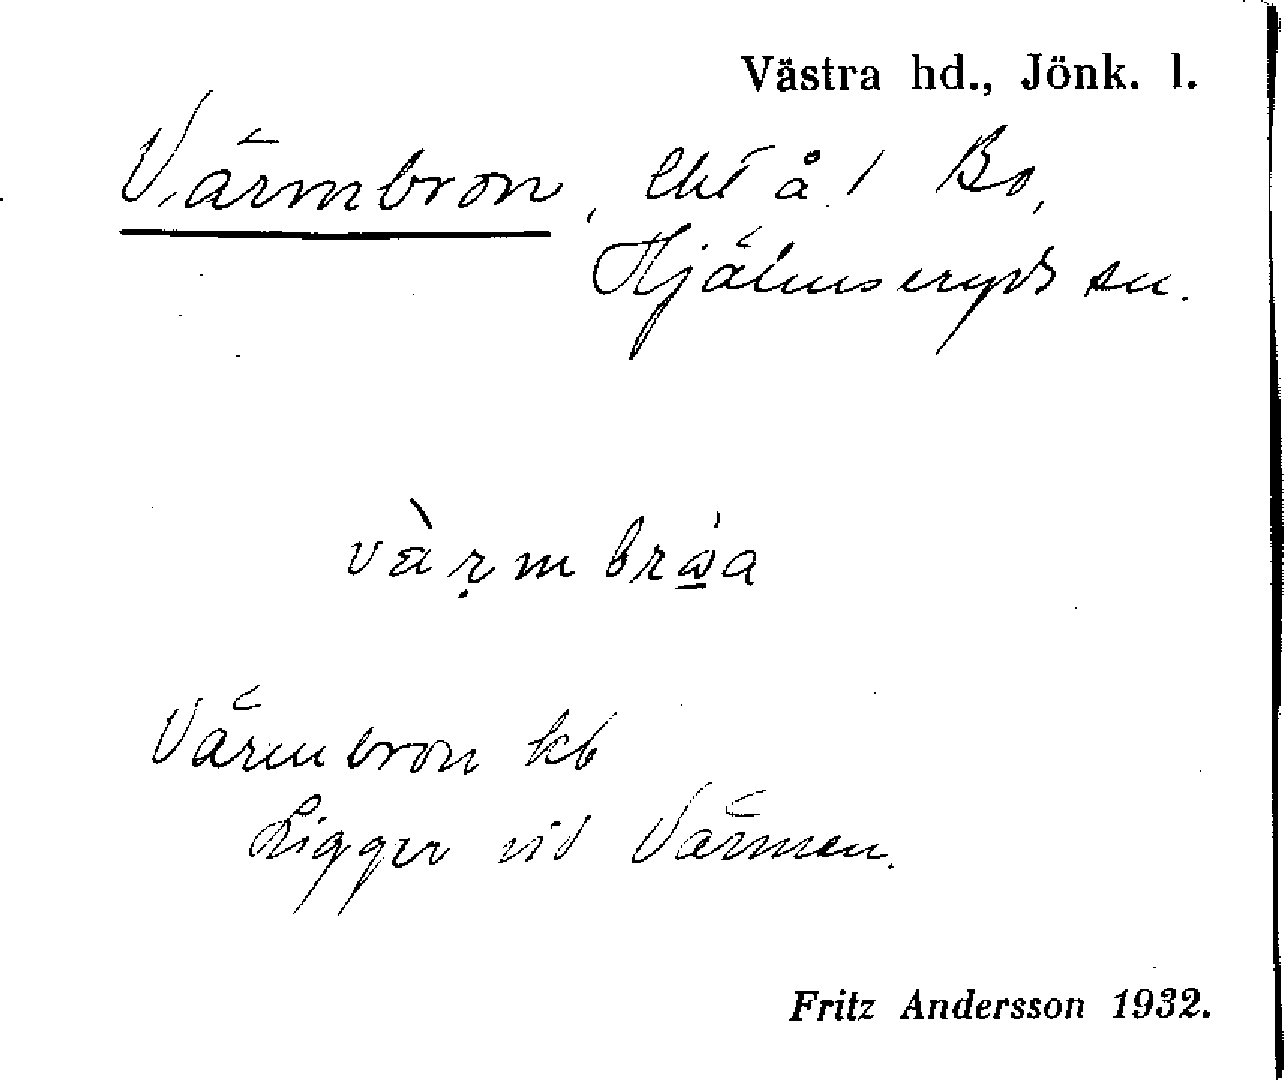 Västra hd., Jönk. l.
Värmbron, lht å 1 Bo,
Hjälmseryds sn.
värmbra
Värmbron kb
Ligger vid Värmen.
Fritz Andersson 1932.